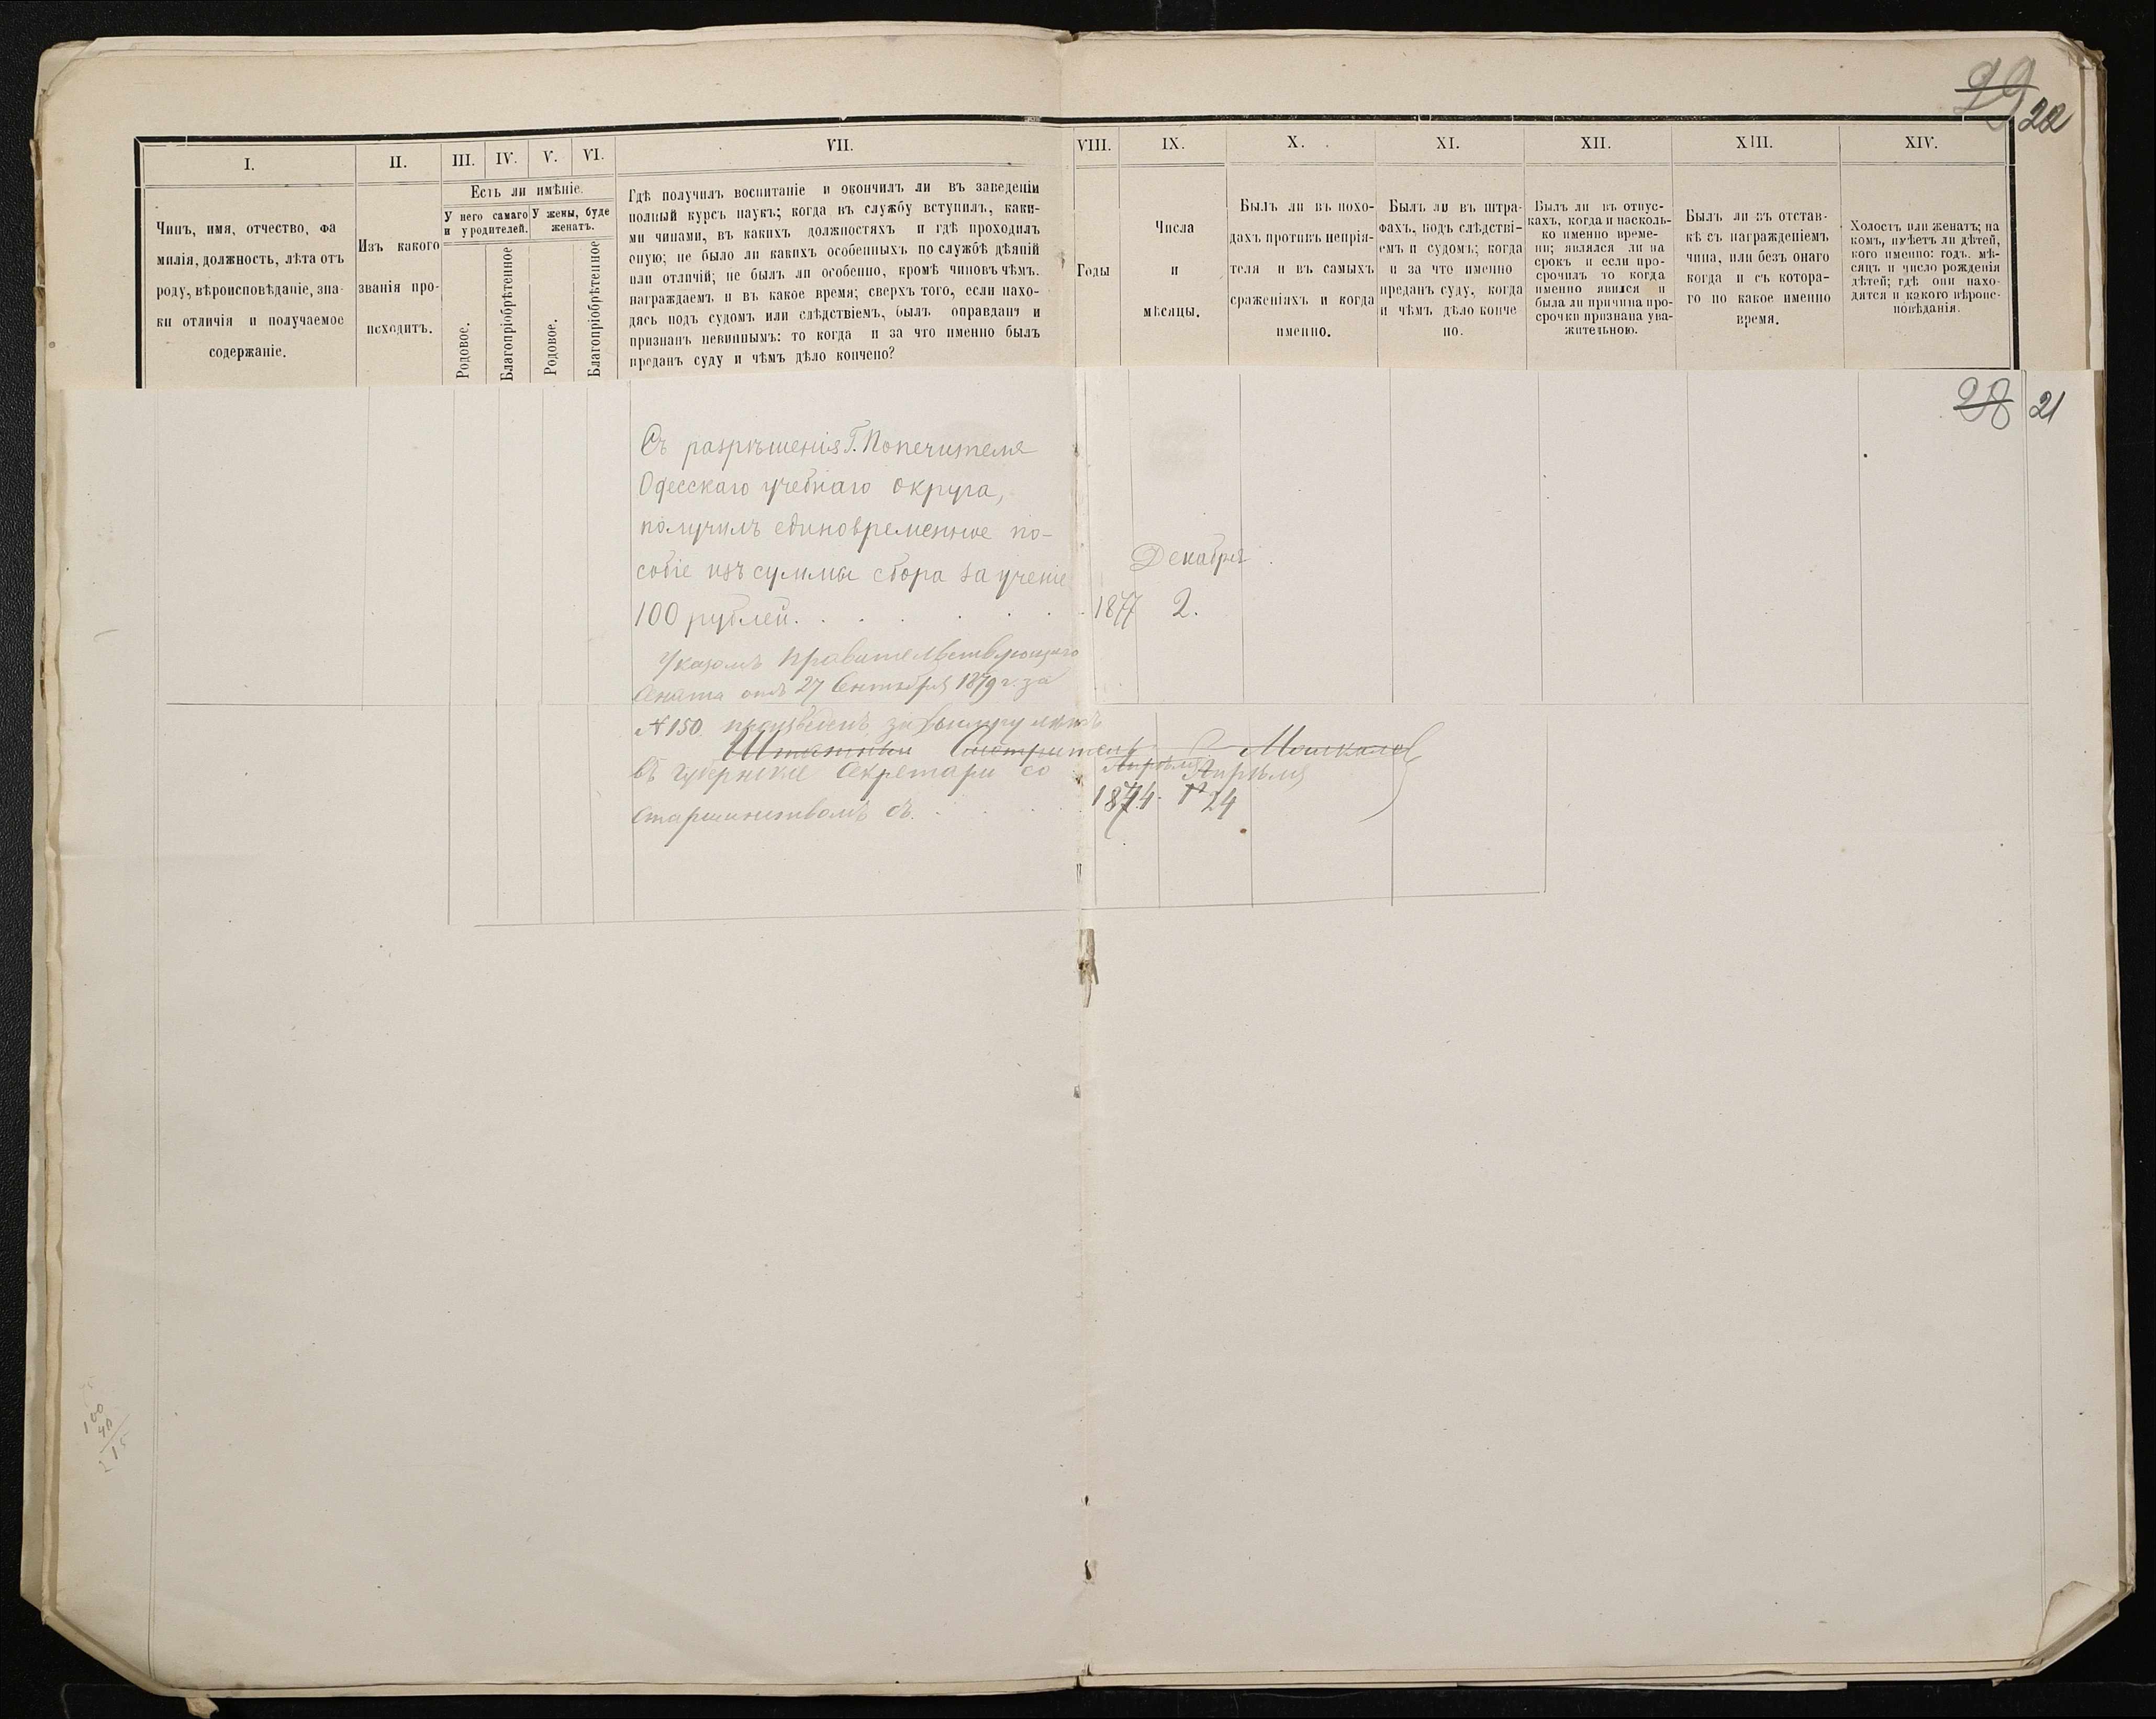 29
22
I.
II.
III.
IV.
V.
VI.
VII.
VIII.
IX.
X.
XI.
XII.
XIII.
XIV.
Чинъ, имя, отчество, фа
милія, должность, лѣта отъ
роду, вѣроисповѣданіе, зна-
ки отличія и получаемое
содержаніе.
Изъ какого
званія про-
исходитъ.
Есть ли имѣніе.
У него самаго
и у родителей.
У жены, буде
женатъ.
Родовое.
Благопріобрѣтенное
Родовое.
Благопріобрѣтенное
Гдѣ получилъ воспитаніе и окончилъ ли въ заведеніи
полный курсъ наукъ; когда въ службу вступилъ, каки-
ми чинами, въ какихъ должностяхъ и гдѣ проходилъ
оную; не было ли какихъ особенныхъ по службѣ дѣяній
или отличій; не былъ ли особенно, кромѣ чиновъ чѣмъ.
награждаемъ и въ какое время; сверхъ того, если нахо-
дясь подъ судомъ или слѣдствіемъ, былъ оправданъ и
признанъ невиннымъ: то когда и за что именно былъ
преданъ суду и чѣмъ дѣло кончено?
Годы
Числа
и
мѣсяцы.
Былъ ли въ похо-
дахъ противъ непрія-
теля и въ самыхъ
сраженіяхъ и когда
именно.
Былъ ли въ штра-
фахъ, подъ слѣдстві-
емъ и судомъ; когда
и за что именно
преданъ суду, когда
и чѣмъ дѣло конче
но.
Былъ ли въ отпус-
кахъ, когда и насколь-
ко именно време-
ни; являлся ли на
срокъ и если про-
срочилъ то когда
именно явился и
была ли причина про-
срочки признана ува-
жительною.
Былъ ли въ отстав-
кѣ съ награжденіемъ
чина, или безъ онаго
когда и съ котора-
го по какое именно
время.
Холостъ или женатъ; на
комъ, имѣетъ ли дѣтей,
кого именно: годъ, мѣ-
сяцъ и число рожденія
дѣтей; гдѣ они нахо-
дятся и какого вѣроис-
повѣданія.
28 21
Съ разрѣшенія Г. Попечителя
Одесскаго учебнаго округа,
получилъ единовременное по-
собіе изъ суммы сбора за ученіе
100 рублей. . . . . . . 1877
Декабря
2.
Указомъ Правительствующаго
Сената отъ 27 Сентября 1879 г. за
№ 150 произведенъ за выслугу лѣтъ
Штатный Смотритель Мошкалов
въ Губернскіе Секретари со
Апрѣля Апрѣля
старшинствомъ съ. . . . . 1874. 24
100
40